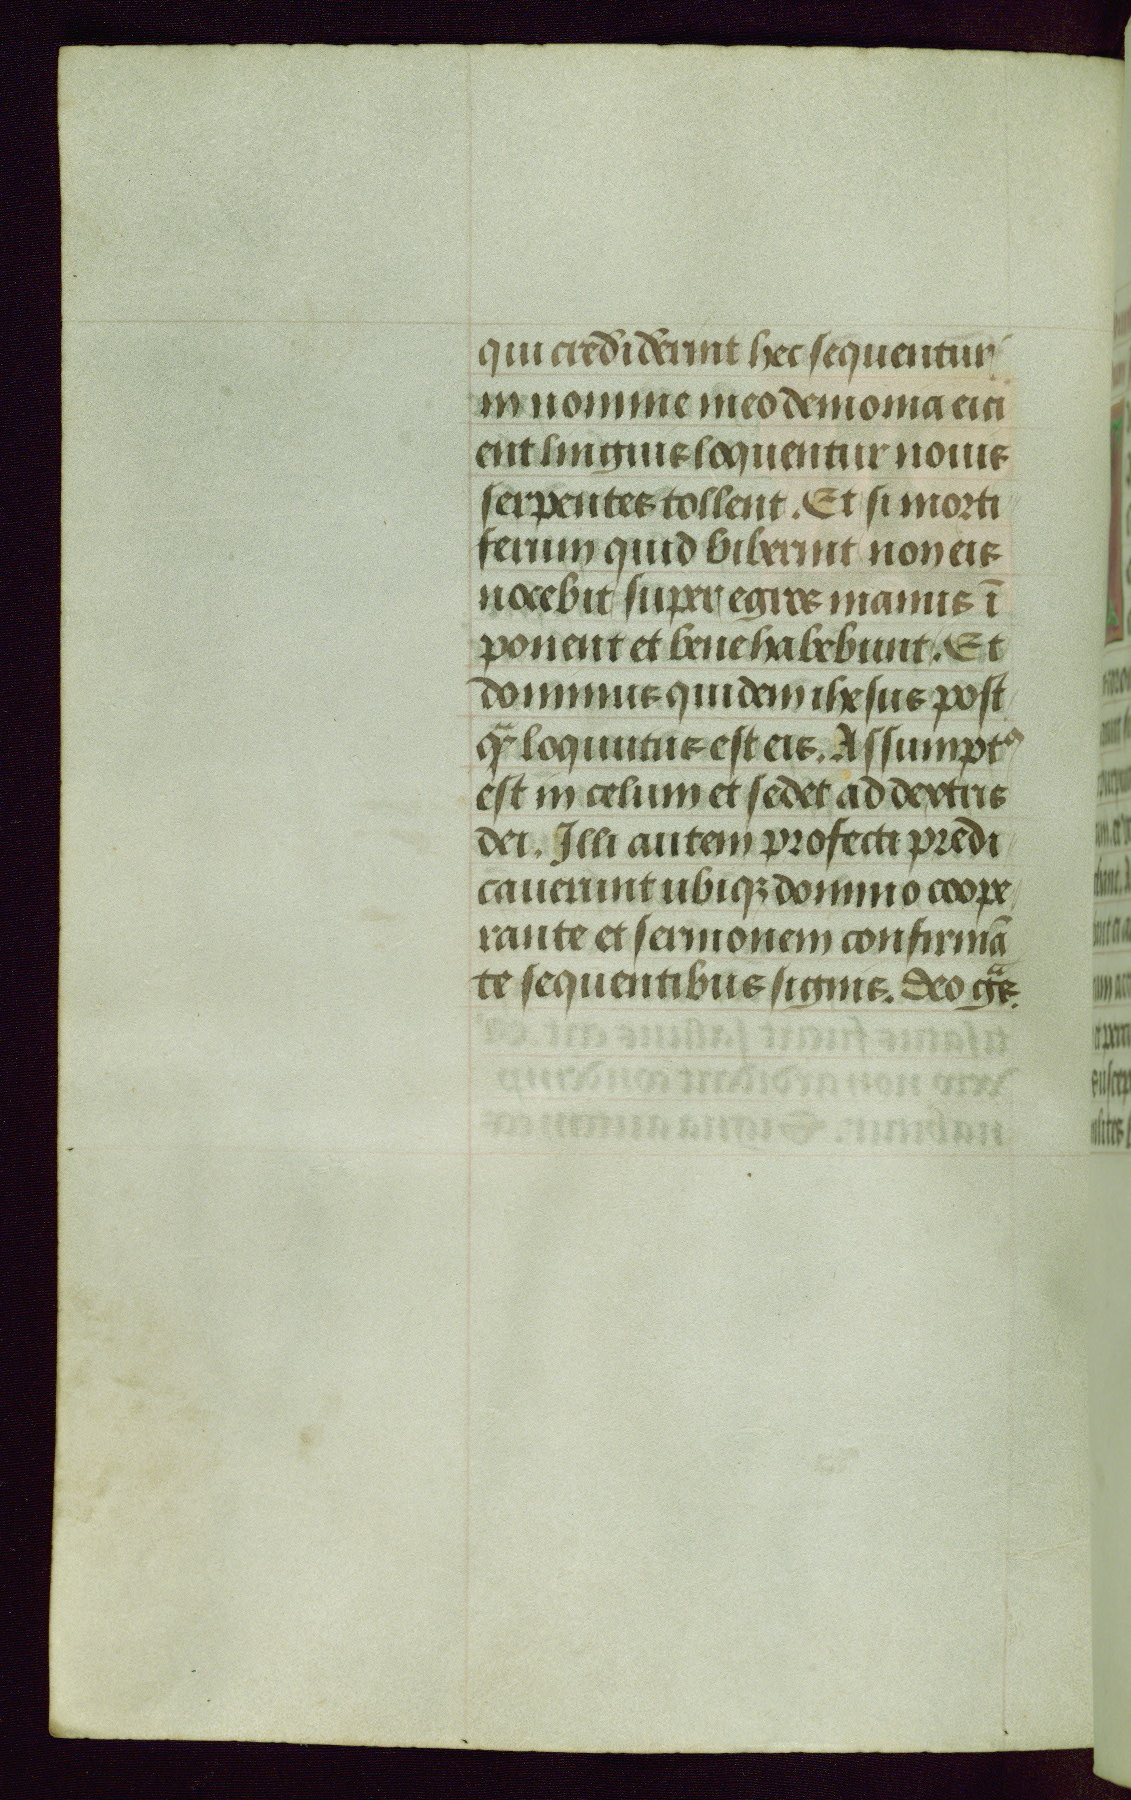 qui crediderint hec sequentur
in nomine meo demonia eici
ent linguis loquentur nouis
serpentes tollent. Et si morti
ferum quid biberint non eis
nocebit super egros manus ī
ponent et bene habebunt. Et
dominus quidem ihesus post
q̃ loquutus est eis. Assumptꝰ
est in celum et sedet ad dextris
dei. Illi autem profecti predi
cauerunt ubiqꝫ domino coope
rante et sermonem confirmā
te sequentibus signis. Deo gͣs.